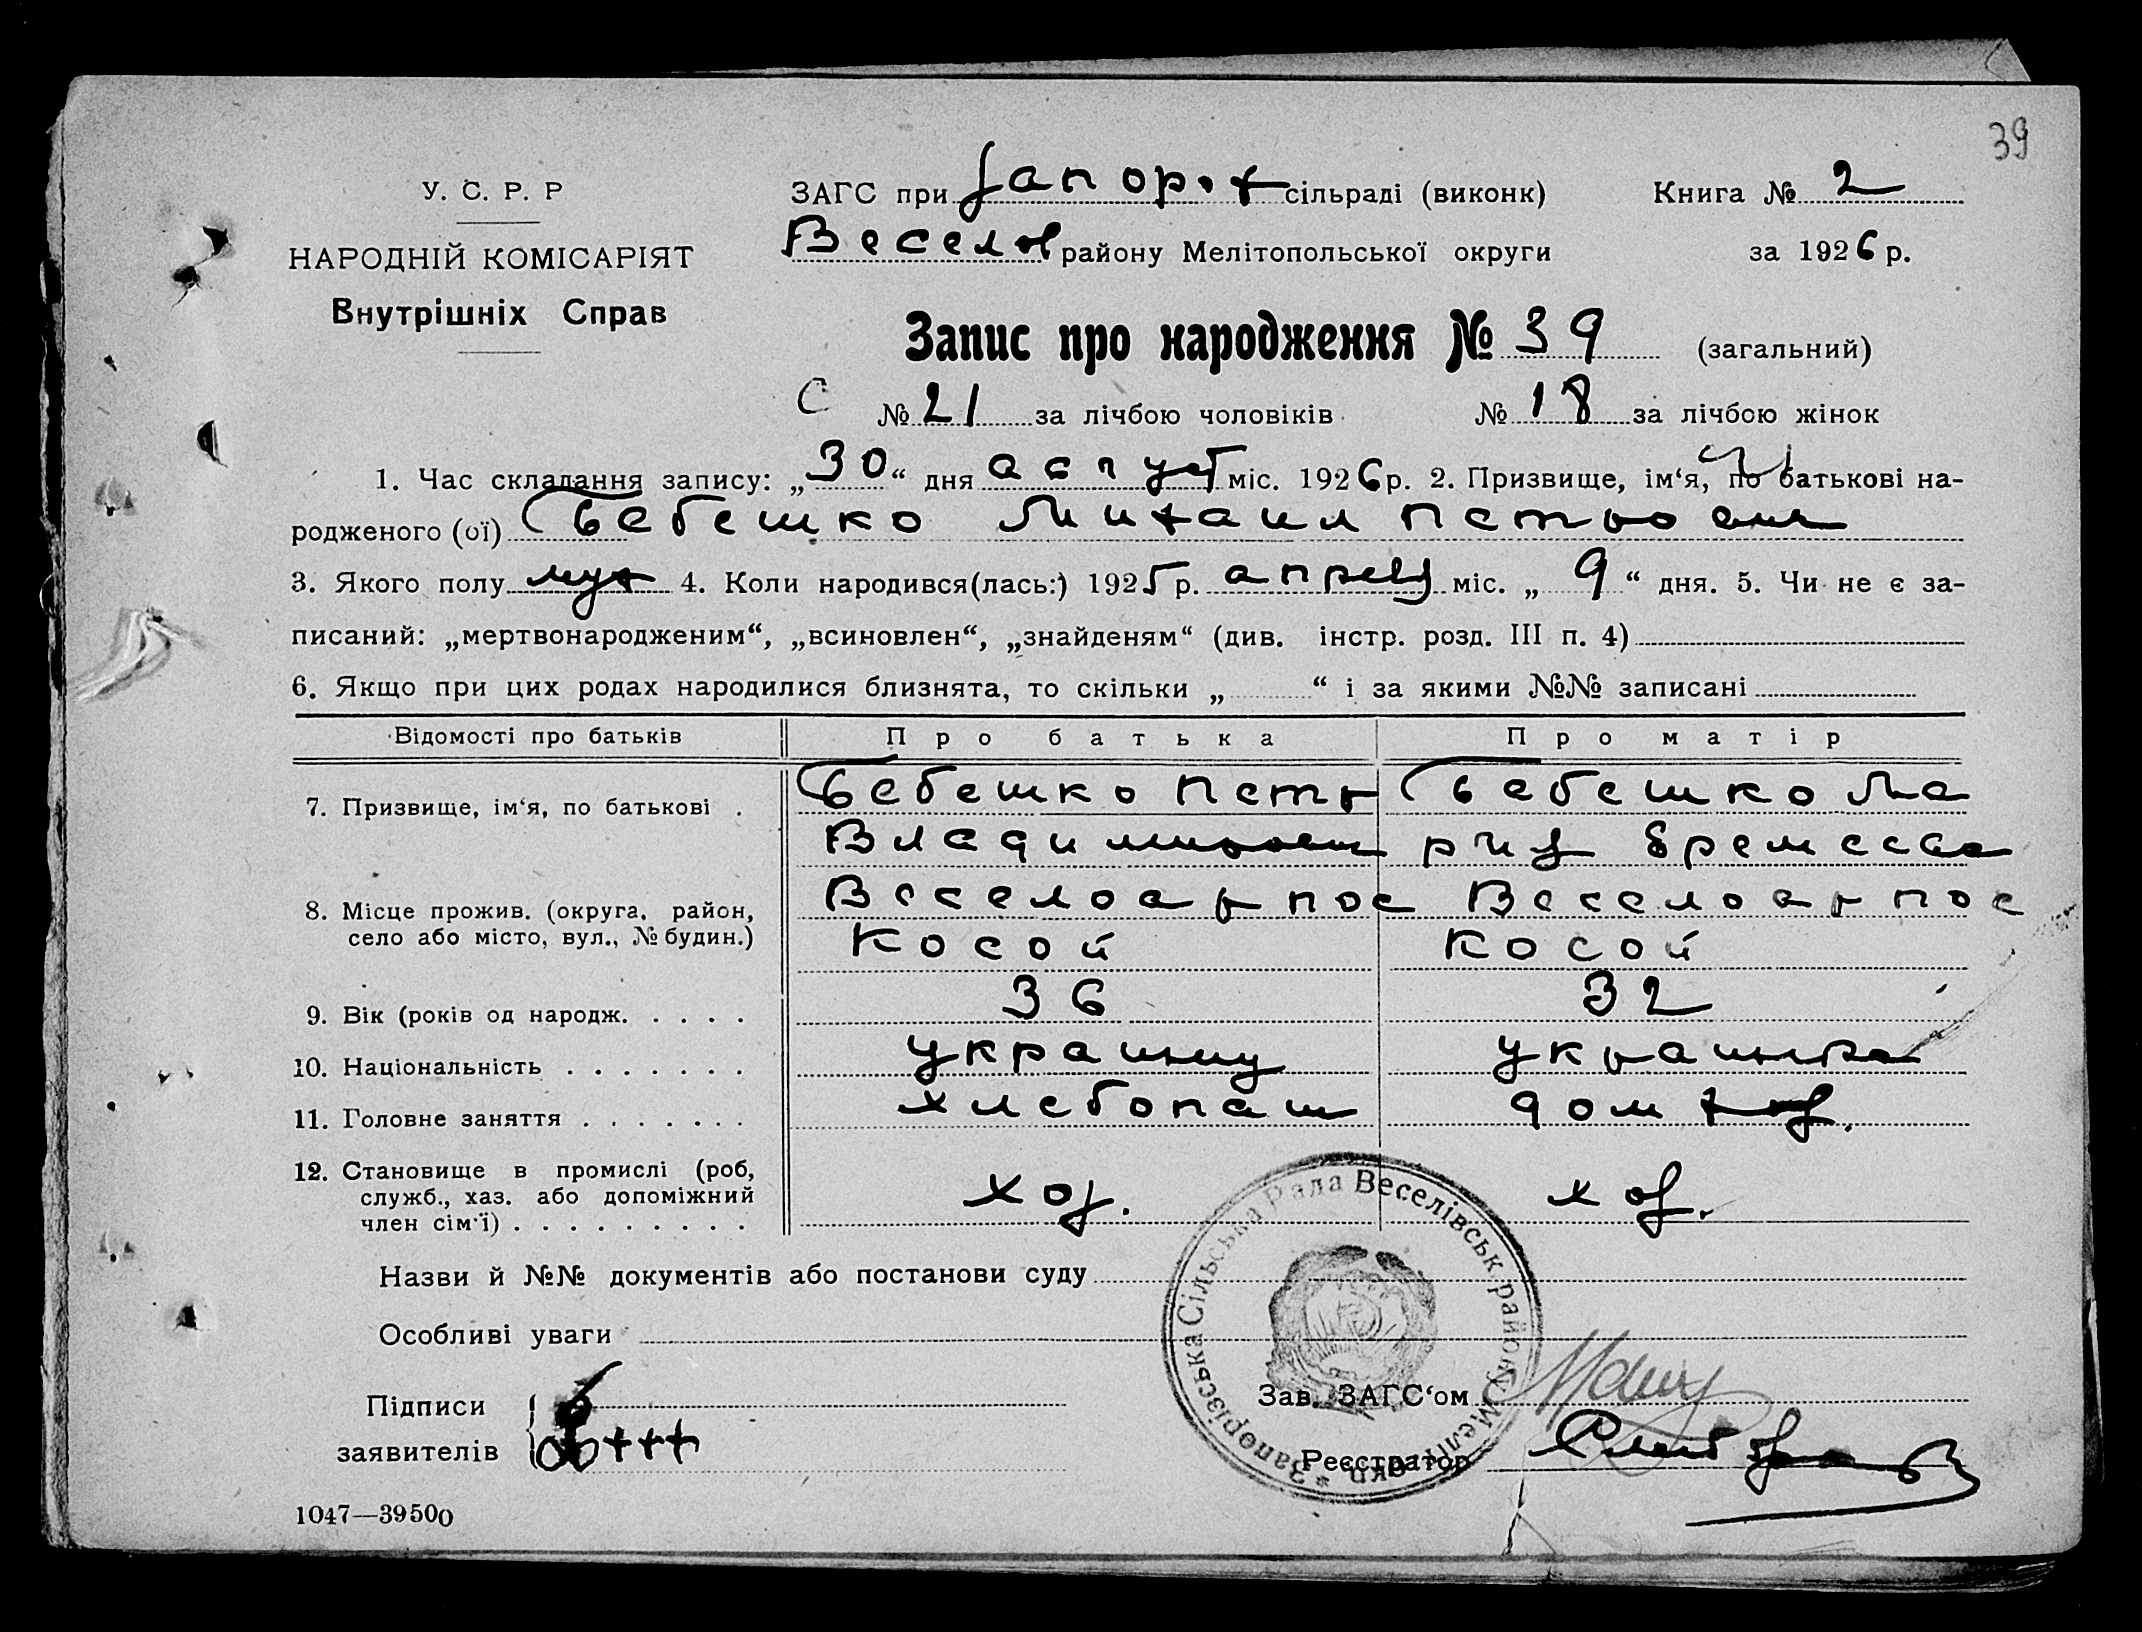 39
У. С. Р. Р
НАРОДНІЙ КОМІСАРІЯТ
Внутрішніх Справ
ЗАГС при Запор.ж сільраді (виконк) Книга № 2
Веселов району Мелітопольської округи за 1926 р.
Запис про народження № 39 (загальний)
С № 21 за лічбою чоловіків № 18 за лічбою жінок
1. Час складання запису: „30“ дня август міс. 1926 р. 2. Призвище, ім‘я, по батькові на-
родженого (ої) Бебешко Михаил Петров
3. Якого полу муж 4. Коли народився(лась:) 1925 р. апреля міс. „9“ дня. 5. Чи не є за-
писаний: „мертвонародженим“, „всиновлен“, „знайденям“ (див. інстр. розд. III п. 4)
6. Якщо при цих родах народилися близнята, то скільки „ “ і за якими №№ записані
Відомості про батьків Про батька Про матір
7. Призвище, ім‘я, по батькові . Бебешко Петр Бебешко Ма
Владимиров рия Еремеева
8. Місце прожив. (округа, район, Веселоар пос Веселоар пос
село або місто, вул., № будин.) Косой Косой
9. Вік (років од народж. . . . . 36 32
10. Національність . . . . . . . украинц украинка
11. Головне заняття . . . . . . . хлебопаш дом хоз.
12. Становище в промислі (роб, хоз. хоз.
служб., хаз. або допоміжний
член сім‘ї) . . . . . . . . .
Назви й №№ документів або постанови суду
Особливі уваги
Підписи
заявителів +++
Зав. ЗАГС‘ом
Реєстратор
Запорізська Сільська Рада Веселівськ. району Меліт. окр. *
1047—39500